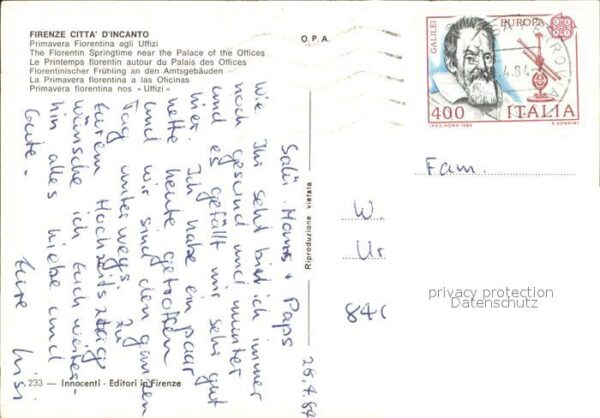 FIRENZE CITTA' D'INCANTO
Primavera Fiorentina agli Uffizi
The Florentin Springtime near the Palace of the Offices
Le Printemps florentin autour du Palais des Offices
Florentinischer Frühling an den Amtsgebäuden
La Primavera florentina a las Oficinas
Primavera florentina nos « Uffizi »
O. P. A.
GALILEI
EUROPA
400
ITALIA
I.P.Z.S. ROMA 1983
25.4.84
Salü Mams + Paps
Wie Ihr seht bin ich immer
noch gesund und munter
und es gefällt mir sehr gut
hier. Ich habe ein paar
nette heute getroffen
und wir sind den ganzen
Tag unterwegs. Zu
Eurem Hochzeitstag
wünsche ich Euch weiter-
hin alles Liebe und
Gute.
Eure Lisi
Riproduzione vietata
Fam.
W.
Ur
privacy protection
Datenschutz
233 — Innocenti - Editori in Firenze